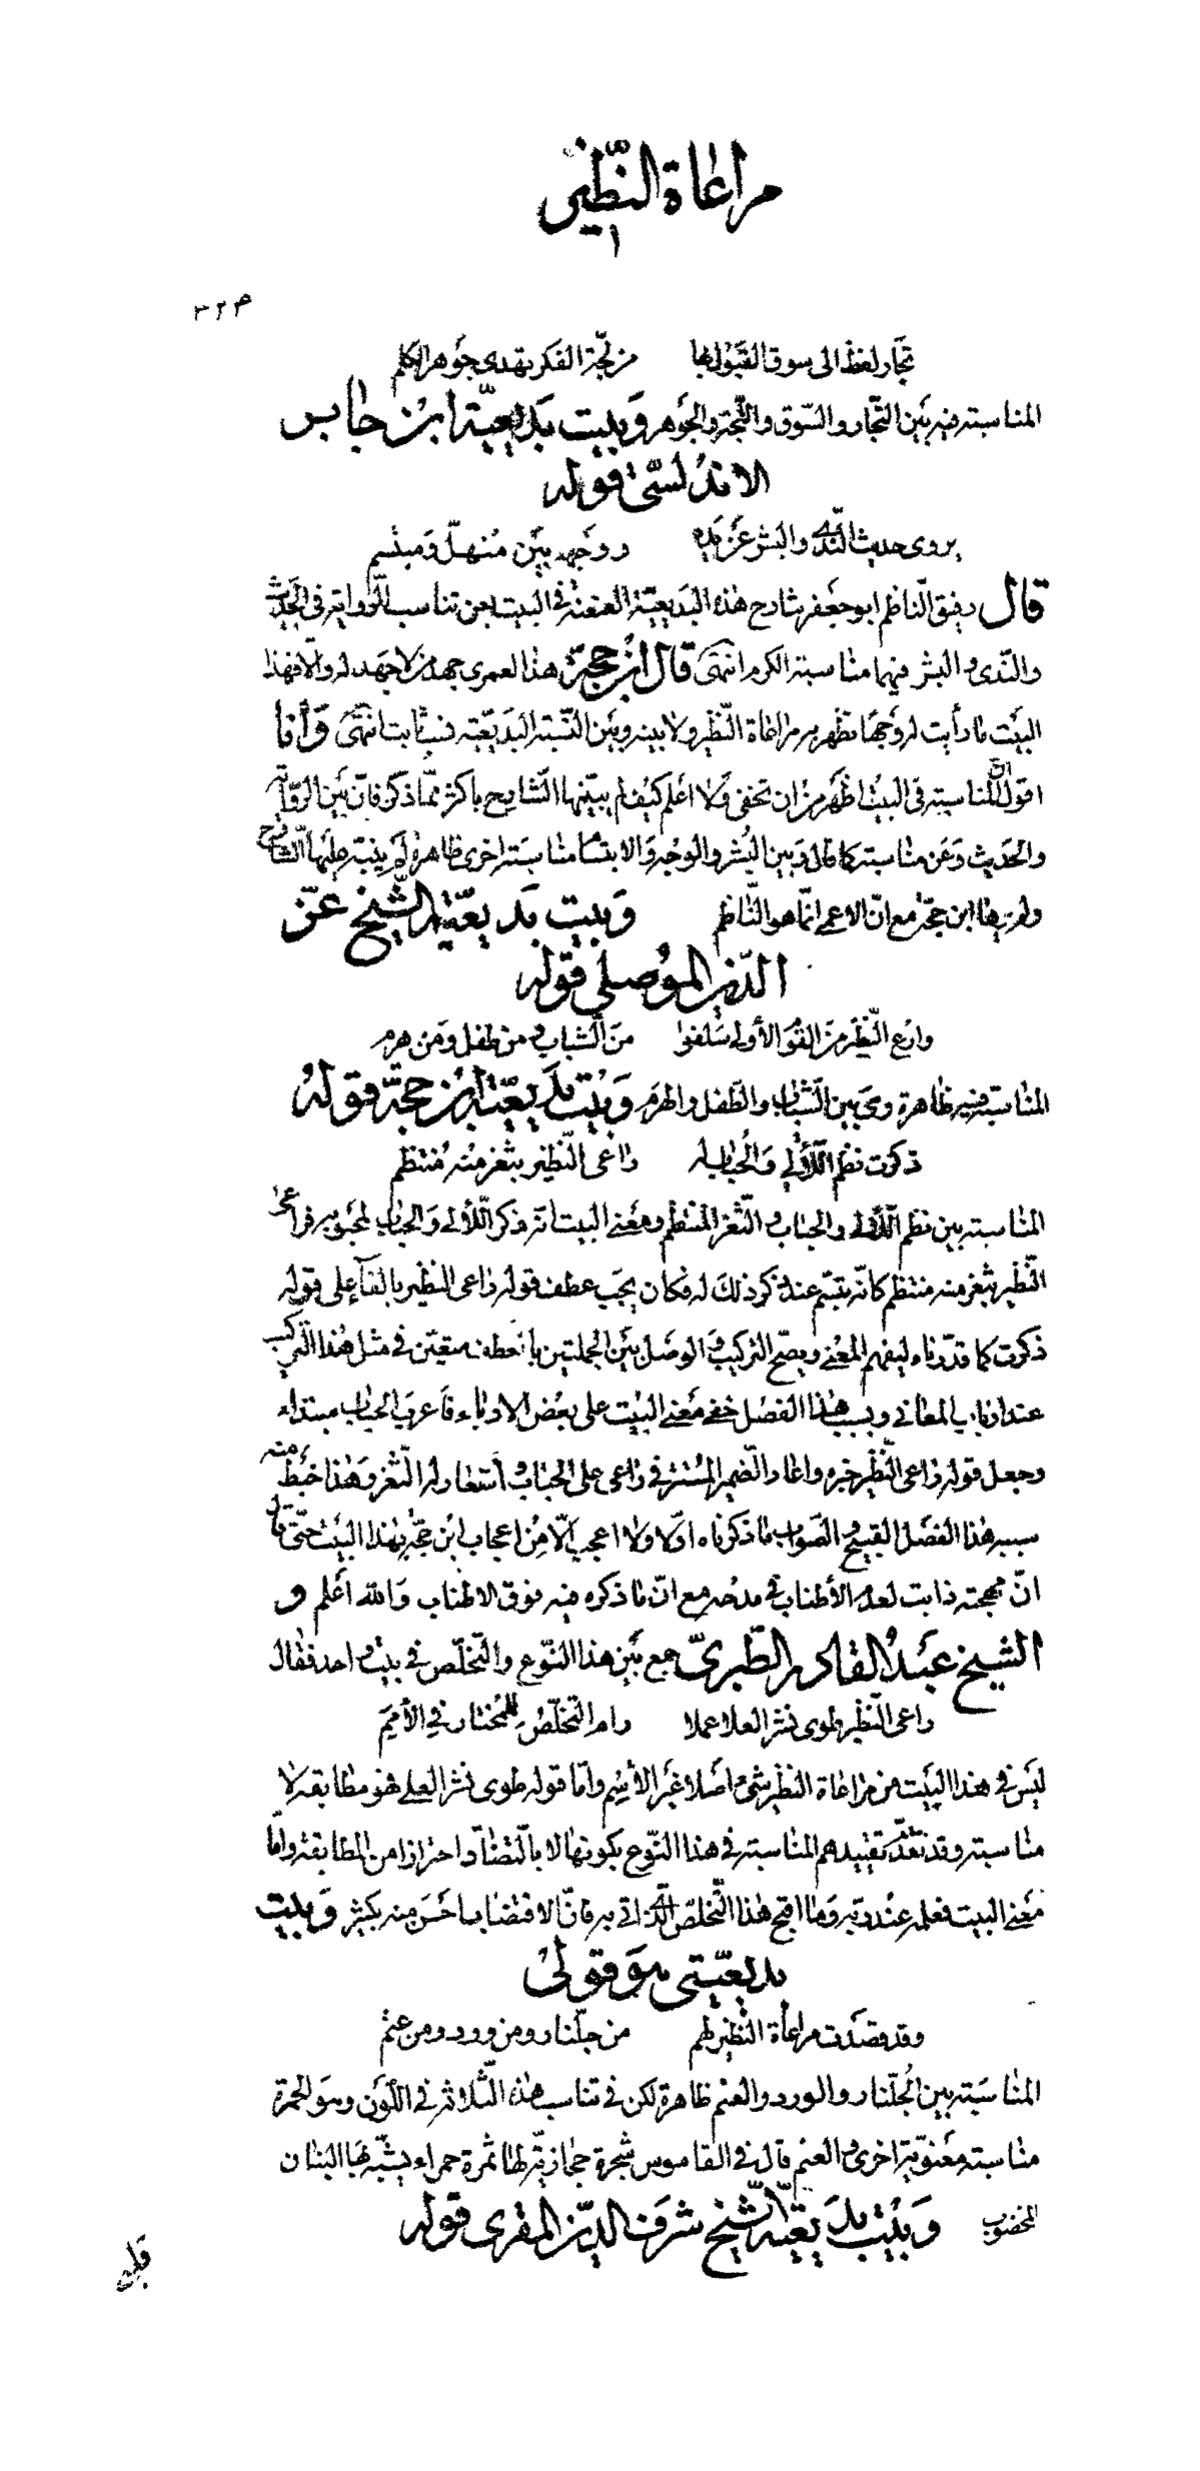 مراعاة النّظير
١
٣٢٣
تجّار لفظ الى سوق القبول بها من لجّة الفكر تهدى جوهر الكلم
المناسبة فيه بين التّجار والسّوق واللّجّة والجوهر وبيت بديعيّة ابن جابر
الاندلسىّ قوله
يروى حديث النّدى والبشر عن يده ووجهه بين منهلّ ومبتسم
قال رفيق النّاظم ابو جعفر شارح هذه البديعيّة العنعنة فى البيت بعن تناسب للرّواية فى الحديث
والنّدى والبشر فيهما مناسبة الكرم انتهى قال ابن حجّة هذا لعمرى جهد من لا جهد له والّا فهذا
البيت ما رأيت له وجها يظهر به مراعاة النّظير ولا بينه وبين النّسبة البديعيّة نسب ثابت انتهى وأنا
اقول المناسبة فى البيت اظهر من ان تخفى ولا اعلم كيف لم يبيّنها الشّارح باكثر ممّا ذكر فانّ بين الرّواية
والحديث وعن مناسبة كما قال وبين البشر والوجه والابتسام مناسبة اخرى ظاهرة لم ينبّه عليها الشّارح
ولم يرها ابن حجّة مع انّ الاعمى انّما هو النّاظم وبيت بديعيّة الشّيخ عزّ
الدّين الموصلى قوله
وارع النّظير من القوم الأولى سلفوا من الشّباب ومن طفل ومن هرم
المناسبة فيه ظاهرة وهى بين الشّباب والطّفل والهرم وبيت بديعيّة ابن حجّة قوله
ذكرت نظم اللّآلى والحباب له راعى النّظير بثغر منه منتظم
المناسبة بين نظم اللّآلى والحباب والثّغر المنتظم ومعنى البيت انّه ذكر اللّآلى والحباب لمحبوبه فراعى
النّظير بثغر منه منتظم كانّه تبسّم عند ذكر ذلك له فكان يجب عطف قوله راعى النظير بالفآء على قوله
ذكرت كما قدّرناه ليفهم المعنى ويصحّ التركيب والوصل بين الجملتين بالعطف متعيّن فى مثل هذا التركيب
عند ارباب المعانى وبسبب هذا الفصل خفى معنى البيت على بعض الادباء فاعرب الحباب مبتداء
وجعل قوله راعى النّظير خبره واعاد الضّمير المستتر فى راعى على الحباب واستعار له الثّغر وهذا خبط منه
سببه هذا الفصل القبيح والصواب ما ذكرناه اوّلا ولا اعجب الّا من اعجاب ابن حجّة بهذا البيت حتّى قال
انّ مهجته ذابت لعدم الأطناب فى مدحه مع انّ ما ذكره فيه فوق الاطناب والله أعلم و
الشيخ عبد القادر الطّبرىّ جمع بين هذا النّوع والتّخلّص فى بيت واحد فقال
راعى النّظير طوى نشر العلا عملا رام التّخلّص للمختار فى الأمم
ليس فى هذا البيت من مراعاة النظير شئ اصلا غير الأسم وامّا قوله طوى نشر العلى فهو مطابقة لا
مناسبة وقد تقدّم تقييدهم المناسبة فى هذا النّوع بكونها لا بالتّضادّ احترازا من المطابقة وامّا
معنى البيت فعلمه عند ربّه وما اقبح هذا التّخلّص الّذى اتى به فانّ الاقتضاب احسن منه بكثير وبيت
بديعيّتى هو قولى
وقد قصدت مراعاة النّظير لهم من جلّنار ومن ورد ومن عنم
المناسبة بين الجلّنار والورد والعنم ظاهرة لكن فى تناسب هذه الثّلاثة فى اللّون وهو الحمرة
مناسبة معنويّة اخرى والعنم قال فى القاموس شجرة حجازيّة لها ثمرة حمراء يشبّه بها البنان
المخضوب وبيت بديعيّة الشّيخ شرف الدّين المقرى قوله